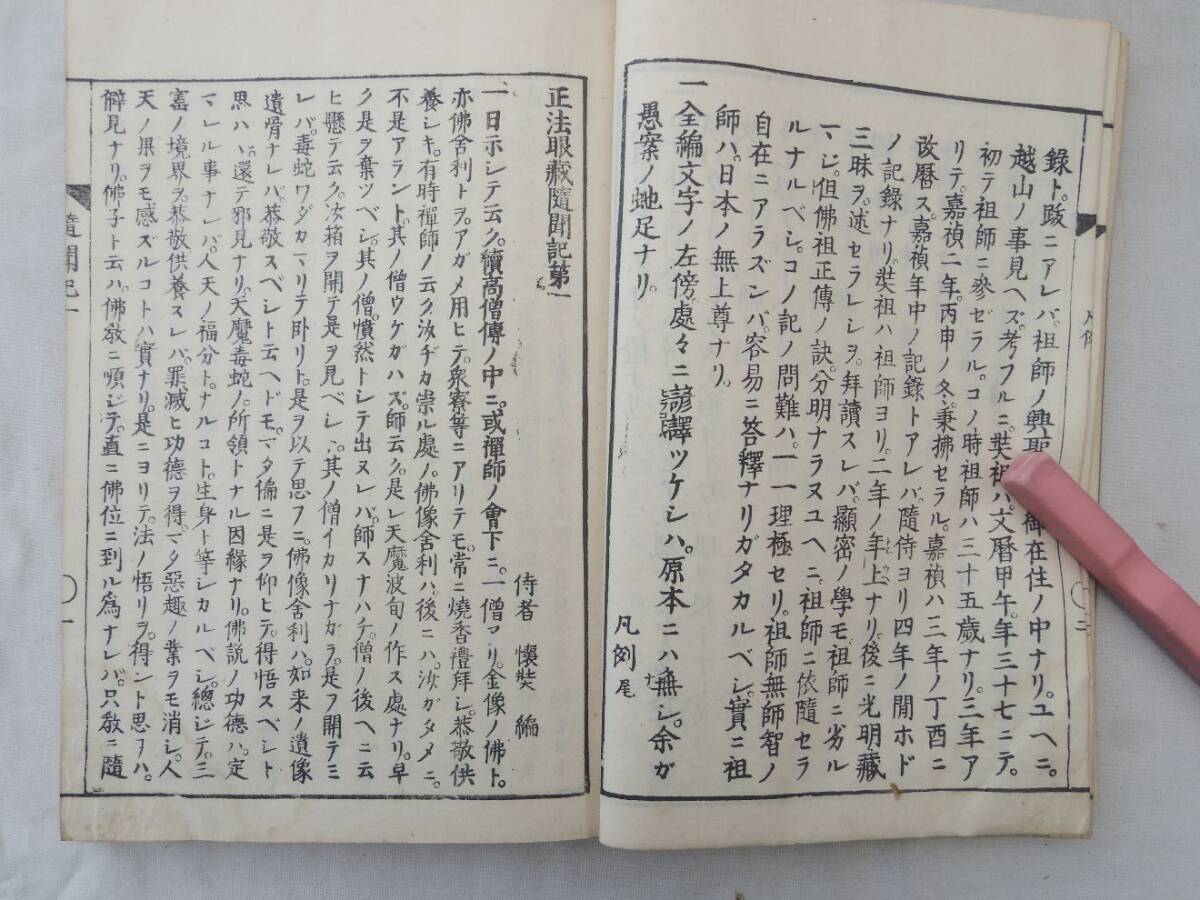 録ト。跋ニアレバ。祖師ノ興聖御在住ノ中ナリ。ユヘニ。
越山ノ事見ヘズ。考フルニ。奘祖ハ。文暦甲午。年三十七ニテ。
初テ祖師ニ參ゼラル。コノ時祖師ハ三十五歳ナリ。三年ア
リテ。嘉禎二年。丙申ノ冬。秉拂セラル。嘉禎ハ三年ノ丁酉ニ
改暦ス。嘉禎年中ノ記録トアレバ。隨侍ヨリ四年ノ間ホド
ノ記録ナリ。奘祖ハ祖師ヨリ。二年ノ年上ナリ。後ニ光明藏
三昧ヲ。述セラレシヲ。拜讀スレバ。顯密ノ學モ。祖師ニ劣ル
マシ。但佛祖正傳ノ訣。分明ナラヌユヘニ。祖師ニ依隨セラ
ルナルベシ。コノ記ノ問難ハ。一一理極セリ。祖師無師智ノ
自在ニアラズンバ。容易ニ答釋ナリガタカルベシ。實ニ祖
師ハ。日本ノ無上尊ナリ。
一 全編文字ノ左傍處々ニ諺譯ツケシハ。原本ニハ無シ。余ガ
愚案ノ虵足ナリ。
凡例尾
正法眼藏隨聞記第一
侍者 懷奘 編
一日示シテ云ク。續高僧傳ノ中ニ。或禪師ノ會下ニ。一僧アリ。金像ノ佛ト。
亦佛舍利トヲ。アガメ用ヒテ。衆寮等ニアリテモ。常ニ燒香禮拜シ。恭敬供
養シキ。有時禪師ノ云ク。汝ヂカ崇ル處ノ。佛像舍利ハ。後ニハ。汝ガタメニ。
不是アラント。其ノ僧ウケガハズ。師云ク。是レ天魔波旬ノ作ス處ナリ。早
ク是ヲ棄ツベシ。其ノ僧。憤然トシテ出ヌレバ。師スナハチ。僧ノ後ヘニ云
ヒ懸テ云ク。汝箱ヲ開テ是ヲ見ベシ。其ノ僧イカリナガラ。是ヲ開テミ
レバ。毒蛇ワダカマリテ臥リト。是ヲ以テ思フニ。佛像舍利ハ。如来ノ遺像
遺骨ナレバ。恭敬スベシト云ヘドモ。マタ偏ニ是ヲ仰ヒテ。得悟スベシト
思ハヾ。還テ邪見ナリ。天魔毒蛇ノ所領トナル因縁ナリ。佛説ノ功德ハ。定
マレル事ナレバ。人天ノ福分ト。ナルコト。生身ト等シカルベシ。總ジテ。三
寳ノ境界ヲ。恭敬供養スレバ。罪滅ヒ功德ヲ得。マタ惡趣ノ業ヲモ消シ。人
天ノ果ヲモ感ズルコトハ實ナリ。是ニヨリテ。法ノ悟リヲ。得ント思フハ。
僻見ナリ。佛子ト云ハ。佛敎ニ順ジテ。直ニ佛位ニ到ル爲ナレバ。只敎ニ隨
隨聞記一
〇一